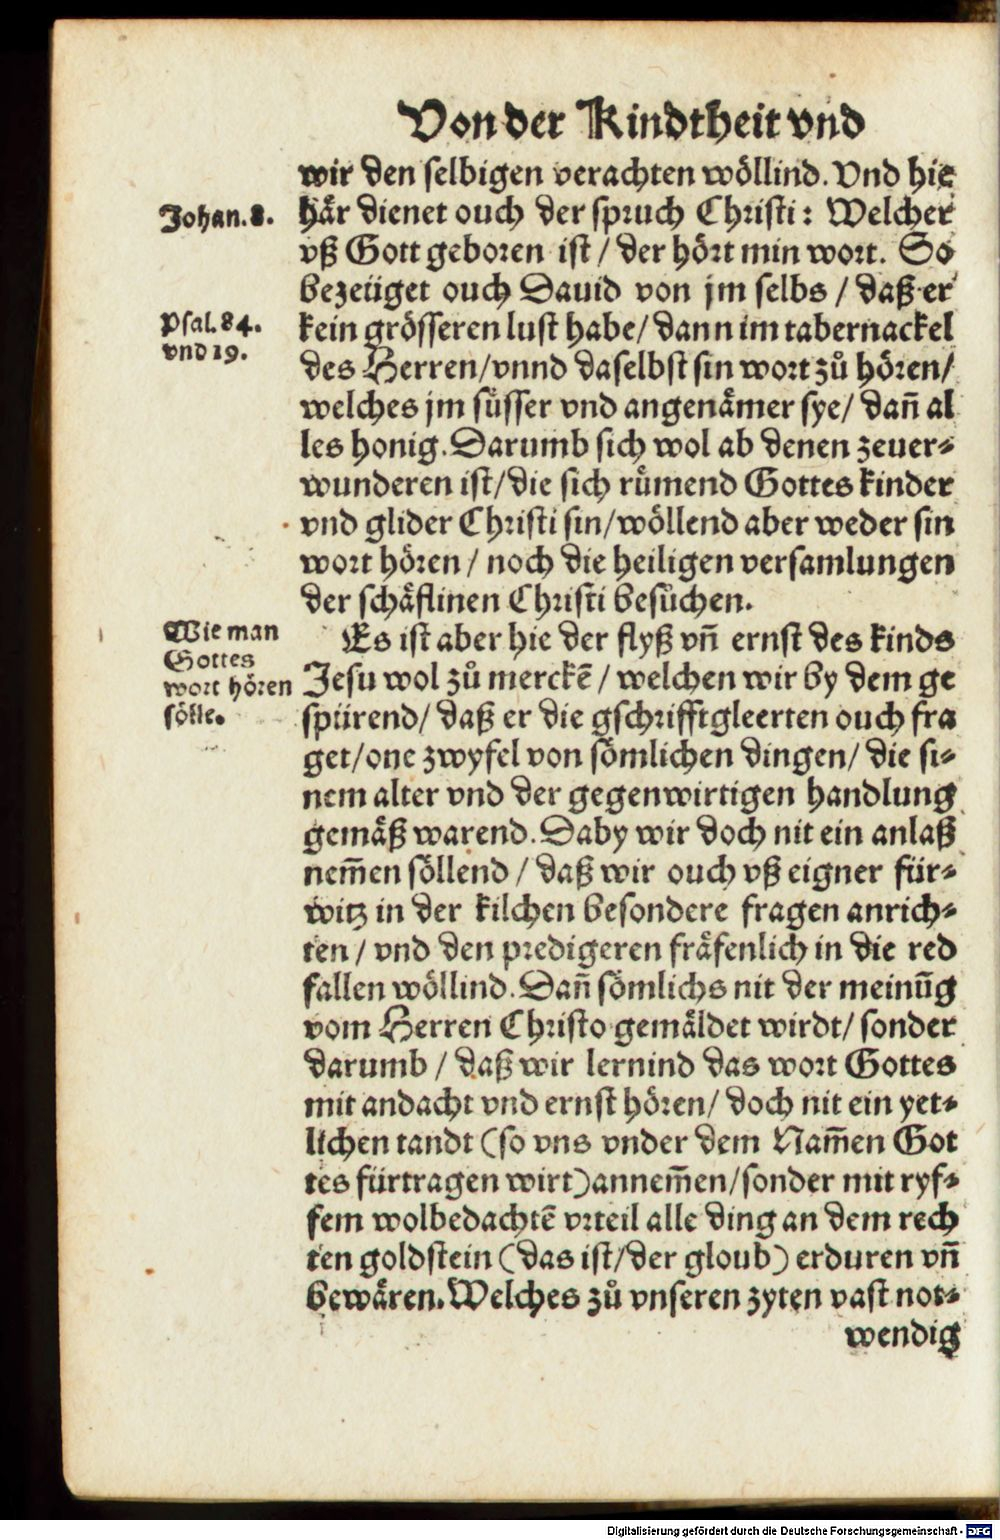 Von der Kindtheit vnd
wir den selbigen verachten wöllind. Vnd hie
Johan. 8.
här dienet ouch der spruch Christi: Welcher
vß Gott geboren ist / der hört min wort. So
bezeüget ouch Dauid von jm selbs / daß er
Psal. 84.
vnd 19.
kein grösseren lust habe / dann im tabernackel
des Herren / vnnd daselbst sin wort zů hören /
welches jm süsser vnd angenämer sye / dañ al
les honig. Darumb sich wol ab denen zeuer⸗
wunderen ist / die sich rümend Gottes kinder
vnd glider Christi sin / wöllend aber weder sin
wort hören / noch die heiligen versamlungen
der schäflinen Christi besůchen.
Wie man
Gottes
wort hören
sölle.
Es ist aber hie der flyß vñ ernst des kinds
Jesu wol zů merckē / welchen wir by dem ge
spürend / daß er die gschrifftgleerten ouch fra
get / one zwyfel von sömlichen dingen / die si⸗
nem alter vnd der gegenwirtigen handlung
gemäß warend. Daby wir doch nit ein anlaß
nem̄en söllend / daß wir ouch vß eigner für⸗
witz in der kilchen besondere fragen anrich⸗
ten / vnd den predigeren fräfenlich in die red
fallen wöllind. Dañ sömlichs nit der meinūg
vom Herren Christo gemäldet wirdt / sonder
darumb / daß wir lernind das wort Gottes
mit andacht vnd ernst hören / doch nit ein yet⸗
lichen tandt (so vns vnder dem Nam̄en Got
tes fürtragen wirt) annem̄en / sonder mit ryf⸗
fem wolbedachtē vrteil alle ding an dem rech
ten goldstein (das ist / der gloub) erduren vñ
bewären. Welches zů vnseren zyten vast not⸗
wendig
Digitalisierung gefördert durch die Deutsche Forschungsgemeinschaft - DFG